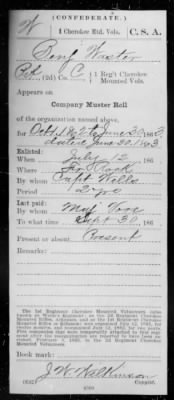 W (CONFEDERATE.)
1 Cherokee Mtd. Vols. C. S. A.
Benj Waster
Pvt (2d) Co. C, 1 Reg't Cherokee Mounted Vols.
Appears on
Company Muster Roll
of the organization named above,
for Oct 1, 62 to June 30, 1863
dated June 30, 1863
Enlisted:
When July 12, 186
Where
By whom Capt Wells
Period 2 yrs
Last paid:
By whom Maj Vore
To what time Sept 30, 186
Present or absent Present
Remarks:
The 1st Regiment Cherokee Mounted Volunteers
Mounted Volunteers.
Book mark:
J. W. Wilkinson
(642) Copyist.